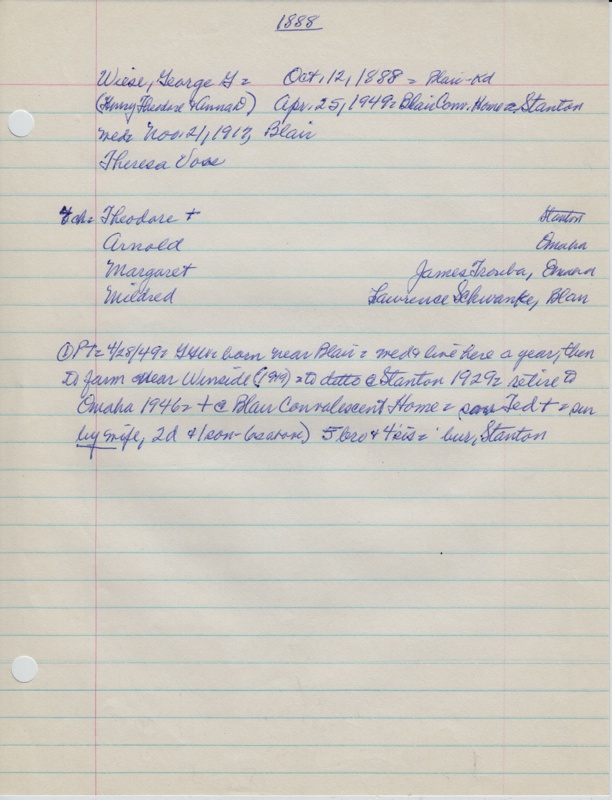 1888
Wiese, George G = Oct. 12, 1888 = Blair-Rd
(Henry Theodore & Anna D) Apr. 25, 1949 = Blair Conv. Home = Stanton
med = Nov. 21, 1917, Blair
Theresa Vose
4 ch = Theodore + Stanton
Arnold Omaha
Margaret James Trouba, Omaha
Mildred Lawrence Schwanke, Blair
① PT = 4/28/49 = GGW = born near Blair = med & live here a year, then
to farm near Winside (1919) = to ditto @ Stanton 1929 = retire to
Omaha 1946 = + @ Blair Convalescent Home = Ted + = sur
by wife, 2d & 1 son 5 bro & 4 sis = bur, Stanton